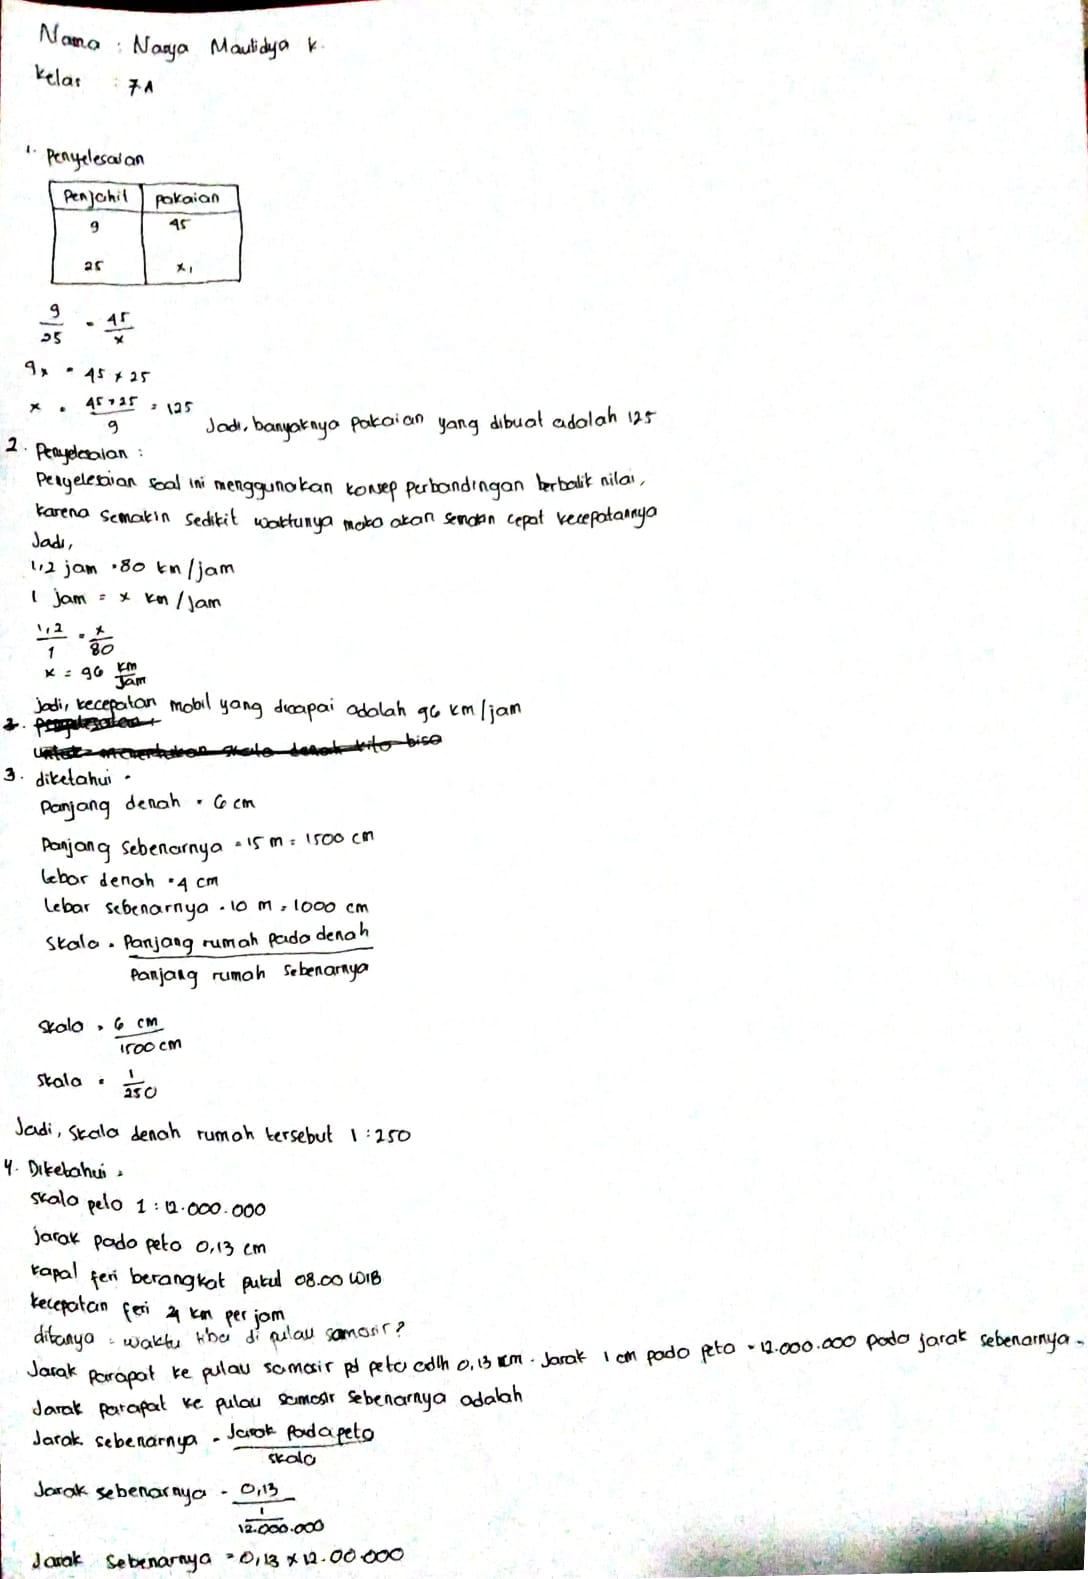 Nama : Nasya Maulidya K.
Kelas : 7A
1. Penyelesaian
Penjahit pakaian
9 45
25 x1
9/25 = 45/x
9x = 45 x 25
x = 45 x 25 / 9 = 125
Jadi, banyaknya Pakaian yang dibuat adalah 125
2. Penyelesaian :
Penyelesaian soal ini menggunakan konsep perbandingan berbalik nilai,
karena semakin sedikit waktunya maka akan semakin cepat kecepatannya
Jadi,
1,2 jam = 80 km/jam
1 jam = x km/jam
1,2/1 = x/80
x = 96 km/Jam
jadi, kecepatan mobil yang dicapai adalah 96 km/jam
3. Penyelesaian :
untuk menentukan skala denah kita bisa
3. diketahui =
Panjang denah = 6 cm
Panjang sebenarnya = 15 m = 1500 cm
lebar denah = 4 cm
lebar sebenarnya = 10 m = 1000 cm
Skala = Panjang rumah pada denah
Panjang rumah sebenarnya
skala = 6 cm
1500 cm
skala = 1/250
Jadi, skala denah rumah tersebut 1 : 250
4. Diketahui =
skala peto 1 : 12.000.000
jarak pada peta 0,13 cm
kapal feri berangkat pukul 08.00 WIB
kecepatan feri km per jam
ditanya = waktu tiba di pulau samosir?
Jarak parapat ke pulau samosir pd peta adlh 0,13 cm. Jarak 1 cm pada peta = 12.000.000 pada jarak sebenarnya.
Jarak parapat ke pulau samosir sebenarnya adalah
Jarak sebenarnya = Jarak Pada peta
skala
Jarak sebenarnya = 0,13
1
12.000.000
Jarak sebenarnya = 0,13 x 12.00.000